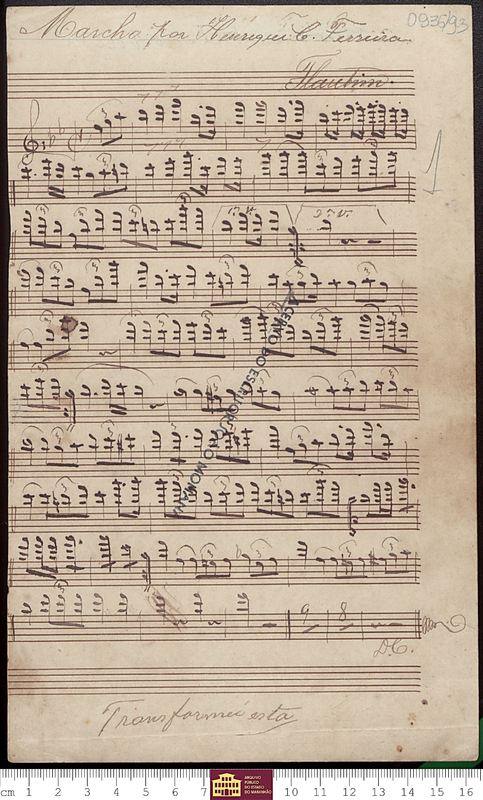 0936/93
Marcha por Henrique C. Ferreira
Flautim.
1
1ª v.
2ª v.
ACERVO DO ESCRITORIO NO MOMAN
9 8
D.C.
Transformei esta
cm 1 2 3 4 5 6 7 10 11 12 13 14 15 16
ARQUIVO
PÚBLICO
DO ESTADO
DO MARANHÃO